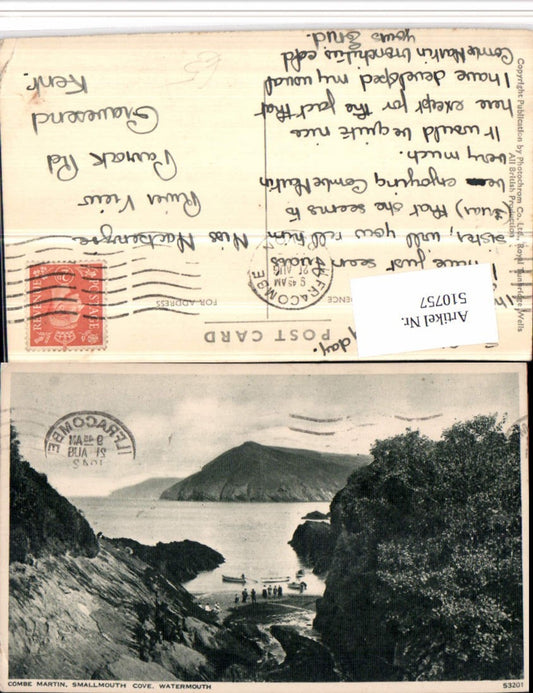 POST CARD
CORRESPONDENCE
FOR ADDRESS
Copyright Publication by Photochrom Co. Ltd., Royal Tunbridge Wells
All British Production
day.
I have just seen
sister, will you tell him
(Susan) that she seems to
be enjoying Combe Martin
very much.
It would be quite nice
here except for the fact that
I have developed my usual
Combe Martin
yours
Miss
River View
Parrock Rd
Gravesend
Kent.
ILFRACOMBE
9 45AM
21 AUG
POSTAGE
REVENUE
Artikel Nr.
510757
ILFRACOMBE
21 AUG
COMBE MARTIN, SMALLMOUTH COVE, WATERMOUTH
53201